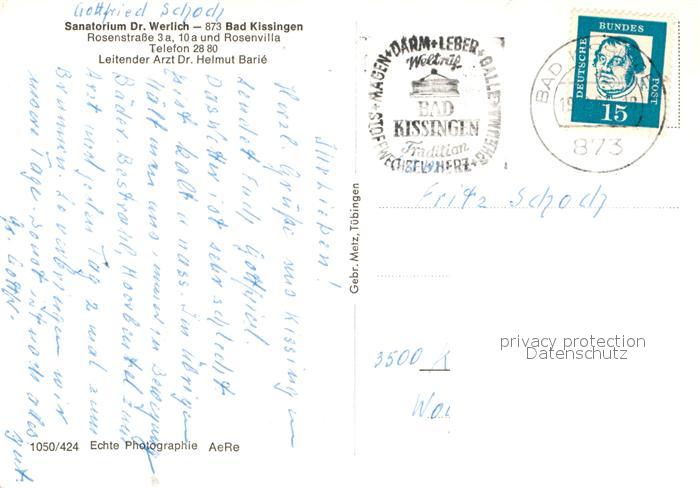 Gottfried Schoch
Sanatorium Dr. Werlich – 873 Bad Kissingen
Rosenstraße 3a, 10a und Rosenvilla
Telefon 28 80
Leitender Arzt Dr. Helmut Barié
Ihr Lieben!
Herzl. Grüße aus Kissingen
sendet Euch Gottfried.
Das Wetter ist sehr schlecht
kalt u nass. Im übrigen
hält man uns immer in Bewegung
Bäder, Bestrahl, Moorbeutel zum
Arzt und jeden Tag 2 mal zum
Brunnen. So verbringen wir
unsere Tage. Sonst ist noch alles
gut.
Gr. Gottfr.
1050/424 Echte Photographie AeRe
Gebr. Metz, Tübingen
MAGEN+DARM+LEBER+GALLE+RHEUMA+HERZ+STOFFWECHSEL
Weltruf
BAD
KISSINGEN
Tradition
BAD
873
DEUTSCHE BUNDESPOST
15
Fritz Schoch
3500 K
privacy protection
Datenschutz